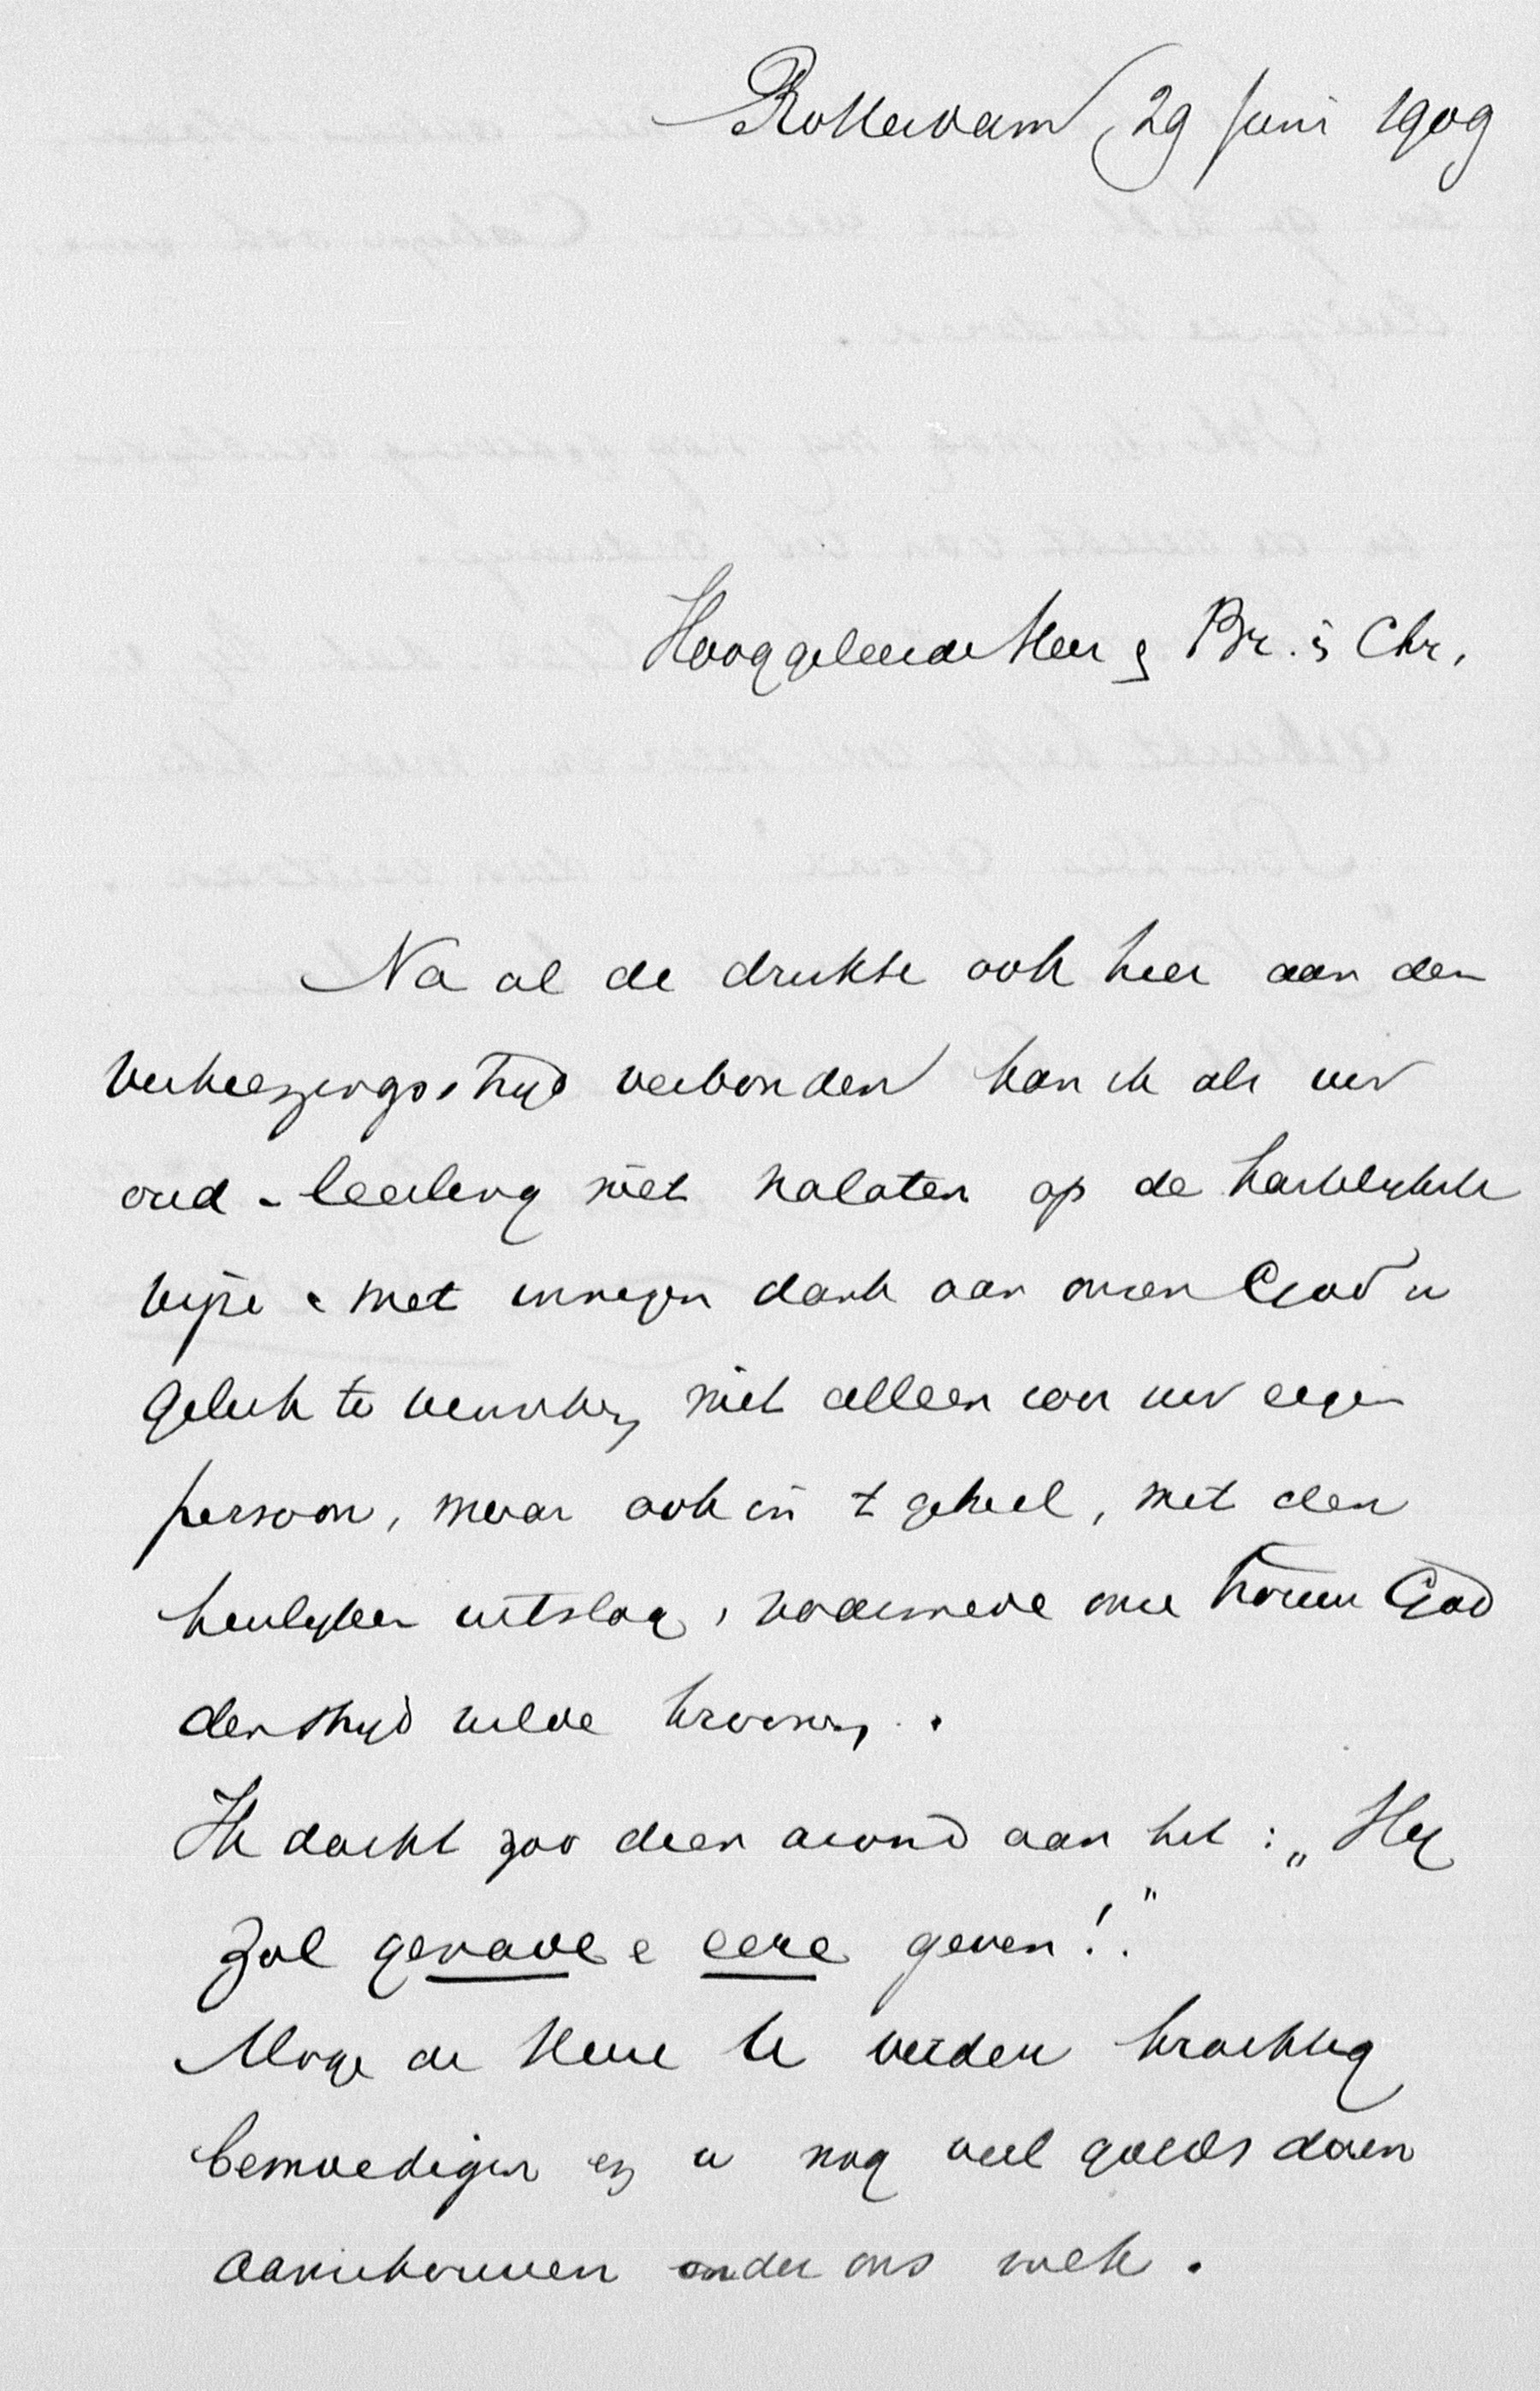 Rotterdam, 29 Juni 1909
Hooggeleerde Heer & Br. in Chr.
Na al de drukte ook hier aan den
verkiezingsstrijd verbonden kan ik als uw
oud-leerling niet nalaten op de hartelijkste
wijze & met innigen dank aan onzen God u
geluk te wenschen, niet alleen voor uw eigen
persoon, maar ook in 't geheel, met den
heerlijken uitslag, waarmede onze trouwe God
den strijd wilde kroonen.
Ik dacht zoo dien avond aan het: „Hij
zal genade e eere geven!"
Moge de Heere U verder krachtig
bemoedigen en u nog veel goeds doen
aanschouwen onder ons volk.